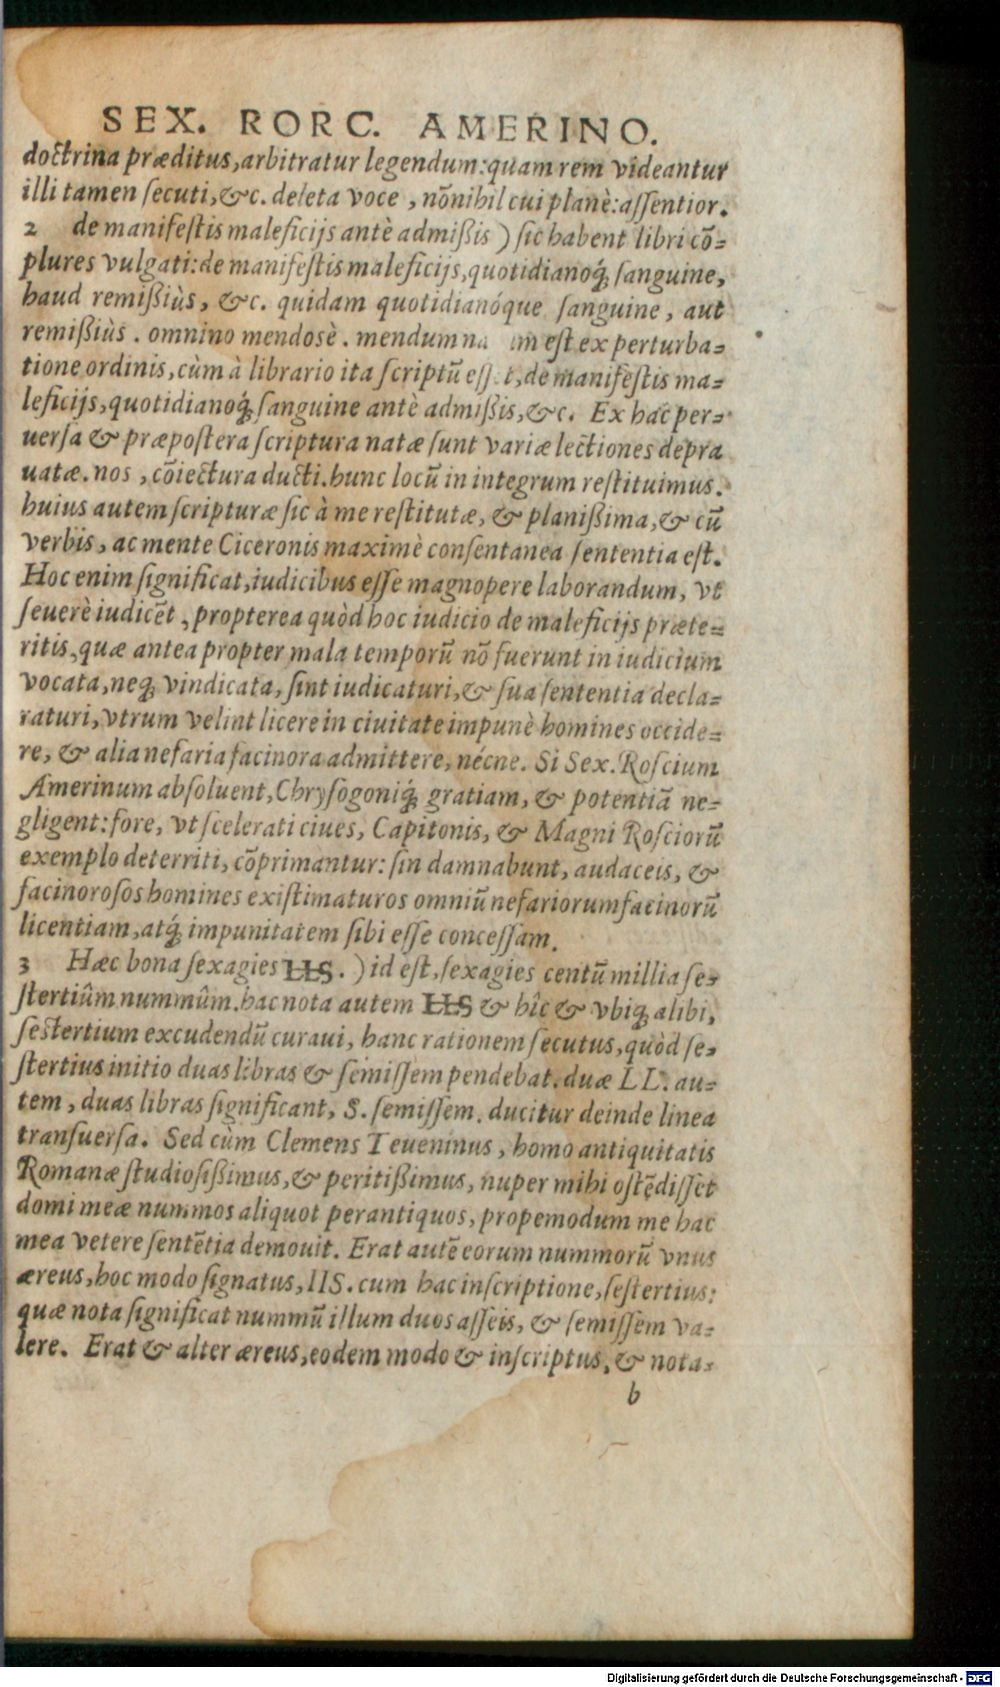 SEX. RORC. AMERINO.
doctrina præditus, arbitratur legendum: quam rem videantur
illi tamen secuti, &c. deleta voce, nõnihil cui planè: assentior.
2 de manifestis maleficijs antè admißis ) sic habent libri cõ-
plures vulgati: de manifestis maleficijs, quotidianoq́; sanguine,
haud remißiùs, &c. quidam quotidianóque sanguine, aut
remißiùs. omnino mendosè. mendum est ex perturba-
tione ordinis, cùm à librario ita scriptũ de manifestis ma-
leficijs, quotidianoq́; sanguine antè admißis, &c. Ex hac per-
uersa & præpostera scriptura natæ sunt variæ lectiones depra
uatæ. nos, cõiectura ducti. hunc locũ in integrum restituimus.
huius autem scripturæ sic à me restitutæ, & planißima, & cũ
verbis, ac mente Ciceronis maximè consentanea sententia est.
Hoc enim significat, iudicibus esse magnopere laborandum, vt
seuerè iudicẽt, propterea quòd hoc iudicio de maleficijs præte-
ritis, quæ antea propter mala temporũ nõ fuerunt in iudicium
vocata, neq; vindicata, sint iudicaturi, & sua sententia decla-
raturi, vtrum velint licere in ciuitate impunè homines occide-
re, & alia nefaria facinora admittere, nécne. Si Sex. Roscium
Amerinum absoluent, Chrysogoniq́; gratiam, & potentiã ne-
gligent: fore, vt scelerati ciues, Capitonis, & Magni Rosciorũ
exemplo deterriti, cõprimantur: sin damnabunt, audaceis, &
facinorosos homines existimaturos omniũ nefariorum facinorũ
licentiam, atq́; impunitatem sibi esse concessam.
3 Hæc bona sexagies LLS. ) id est, sexagies centũ millia se-
stertiûm nummûm. hac nota autem LLS & hîc & vbiq; alibi,
sestertium excudendũ curaui, hanc rationem secutus, quòd se-
stertius initio duas libras & semissem pendebat. duæ LL. au-
tem, duas libras significant, S. semissem. ducitur deinde linea
transuersa. Sed cùm Clemens Teueninus, homo antiquitatis
Romanæ studiosißimus, & peritißimus, nuper mihi ostẽdisset
domi meæ nummos aliquot perantiquos, propemodum me hac
mea vetere sentẽtia demouit. Erat autẽ eorum nummorũ vnus
æreus, hoc modo signatus, IIS. cum hac inscriptione, sestertius:
quæ nota significat nummũ illum duos asseis, & semissem va-
lere. Erat & alter æreus, eodem modo & inscriptus, & nota-
b
Digitalisierung gefördert durch die Deutsche Forschungsgemeinschaft - DFG